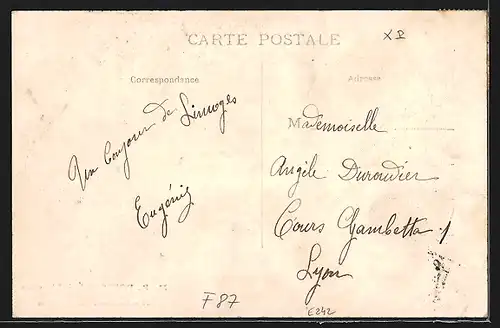 CARTE POSTALE
X P
Correspondance
Adresse
Un bonjour de Limoges
Eugénie
Mademoiselle
Angèle Duroudier
Cours Gambetta 1
Lyon
F87
E242